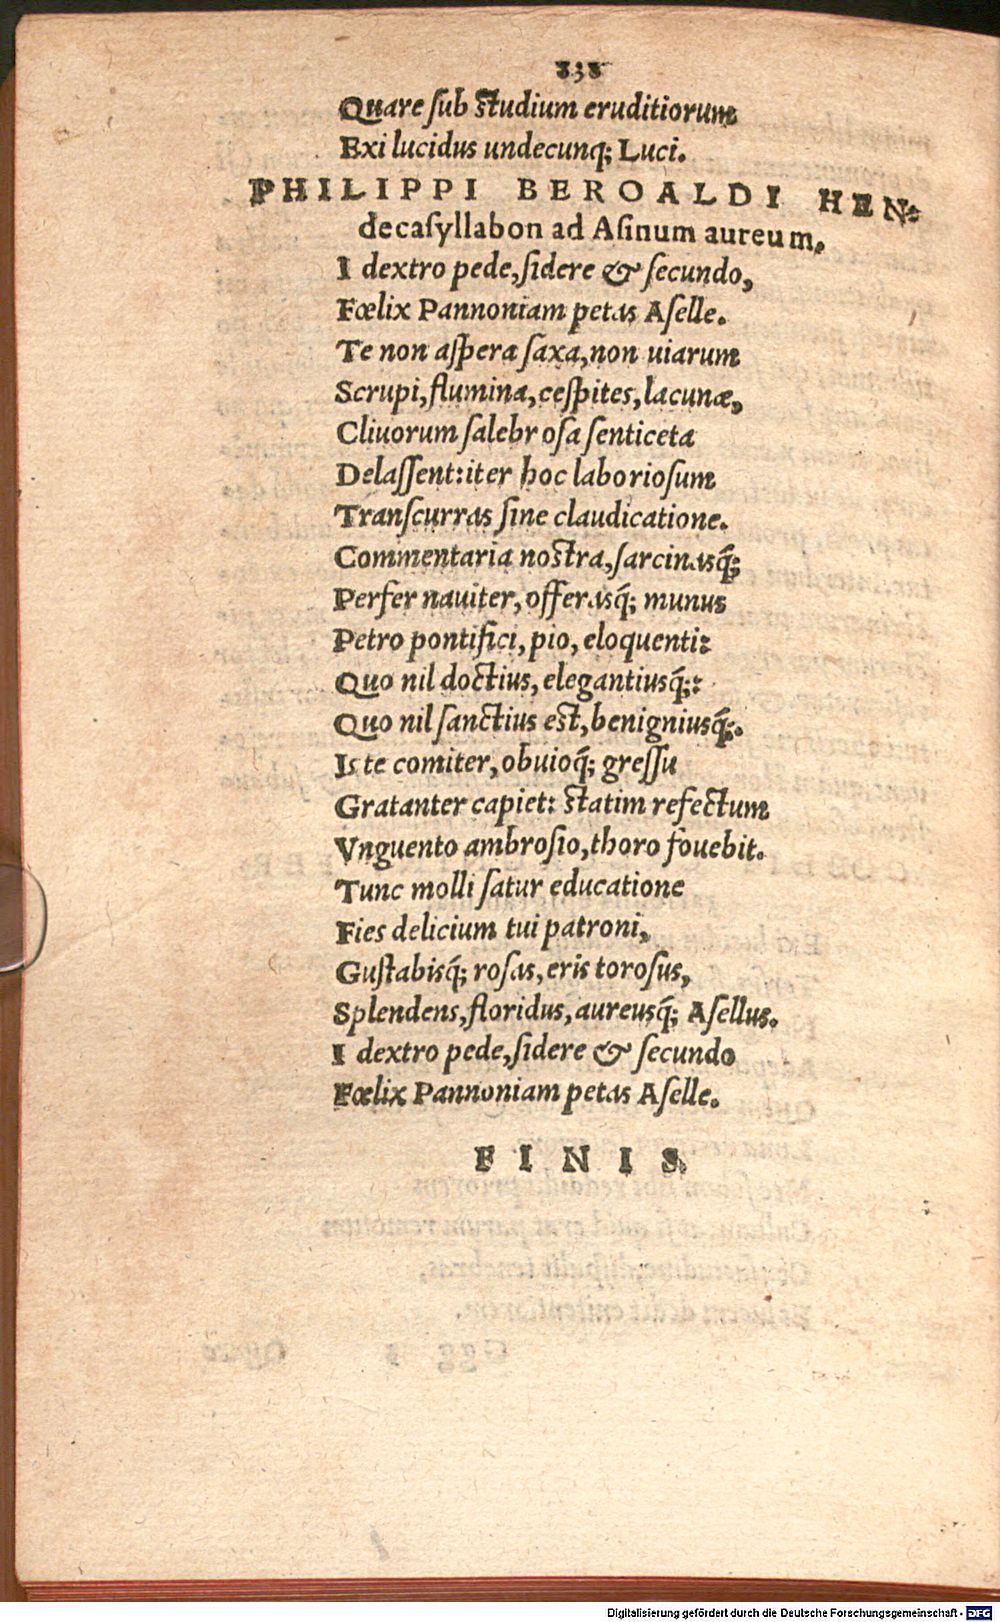 838
Quare ſub ſtudium eruditiorum
Exi lucidus undecunq; Luci.
PHILIPPI BEROALDI HEN-
decaſyllabon ad Aſinum aureum.
I dextro pede, ſidere & ſecundo,
Fœlix Pannoniam petas Aſelle.
Te non aſpera ſaxa, non uiarum
Scrupi, flumina, ceſpites, lacunæ,
Cliuorum ſalebroſa ſenticeta
Delaſſent: iter hoc laborioſum
Tranſcurras ſine claudicatione.
Commentaria noſtra, ſarcinasq́;
Perfer nauiter, offerasq́; munus
Petro pontifici, pio, eloquenti:
Quo nil doctius, elegantiusq́;:
Quo nil ſanctius eſt, benigniusq́;.
Is te comiter, obuioq́; greſſu
Gratanter capiet: ſtatim refectum
Vnguento ambroſio, thoro fouebit.
Tunc molli ſatur educatione
Fies delicium tui patroni,
Guſtabisq́; roſas, eris toroſus,
Splendens, floridus, aureusq́; Aſellus.
I dextro pede, ſidere & ſecundo
Fœlix Pannoniam petas Aſelle.
FINIS.
Digitalisierung gefördert durch die Deutsche Forschungsgemeinschaft - DFG